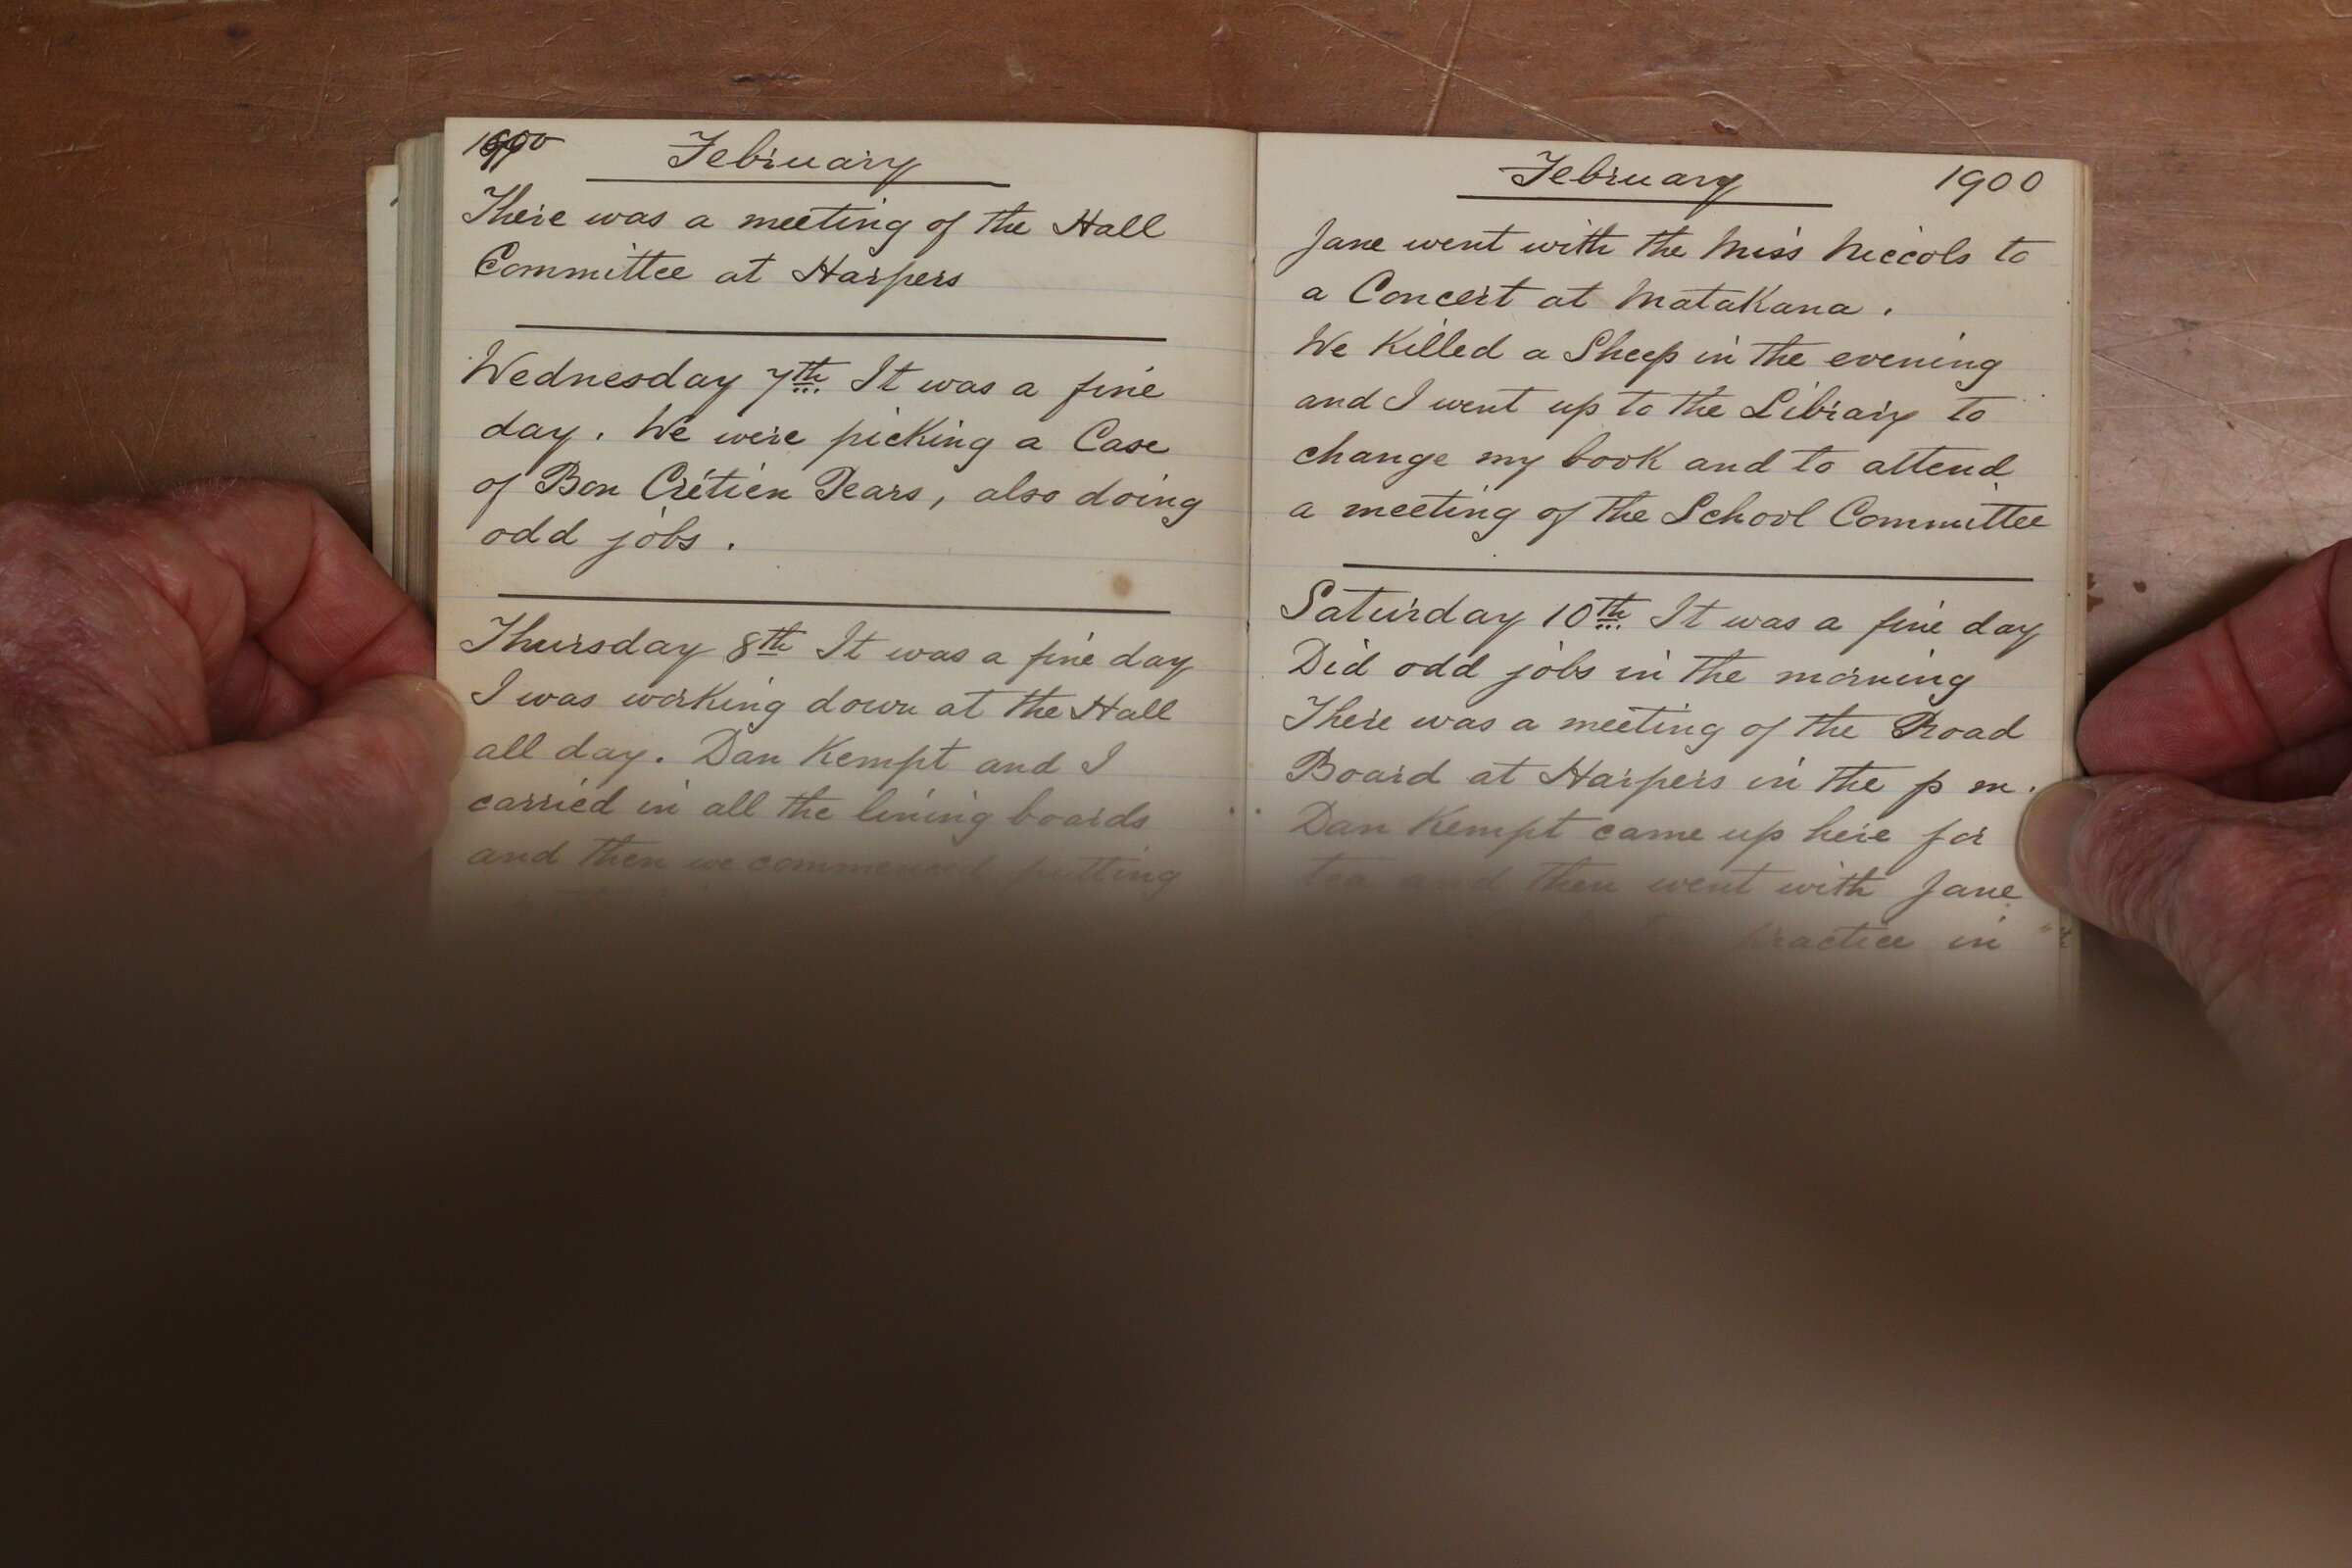 1900 February
There was a meeting of the Hall
Committee at Harpers
Wednesday 7th It was a fine
day. We were picking a Case
of Bon Crétien Pears, also doing
odd jobs.
Thursday 8th It was a fine day
I was working down at the Hall
all day. Dan Kempt and I
carried in all the lining boards
and then we commenced putting
February 1900
Jane went with the Miss Niccols to
a Concert at Matakana.
We Killed a Sheep in the evening
and I went up to the Library to
change my book and to attend
a meeting of the School Committee
Saturday 10th It was a fine day
Did odd jobs in the morning
There was a meeting of the Road
Board at Harpers in the p m.
Dan Kempt came up here for
tea and then went with Jane
practice in